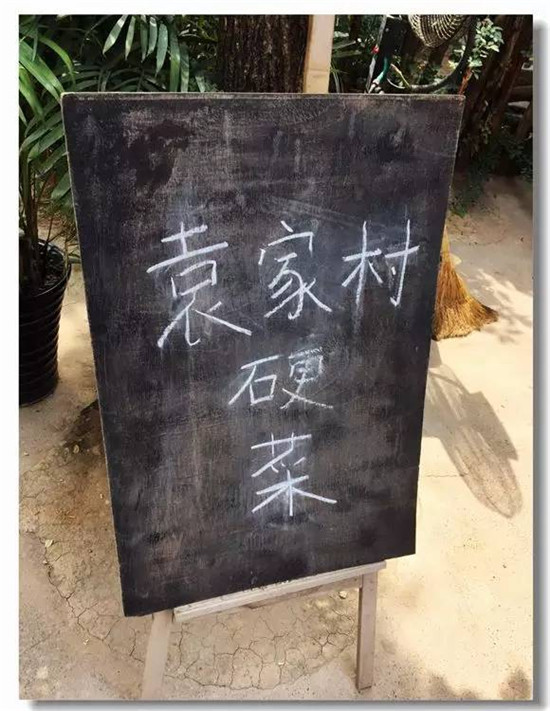 袁家村
硬
菜